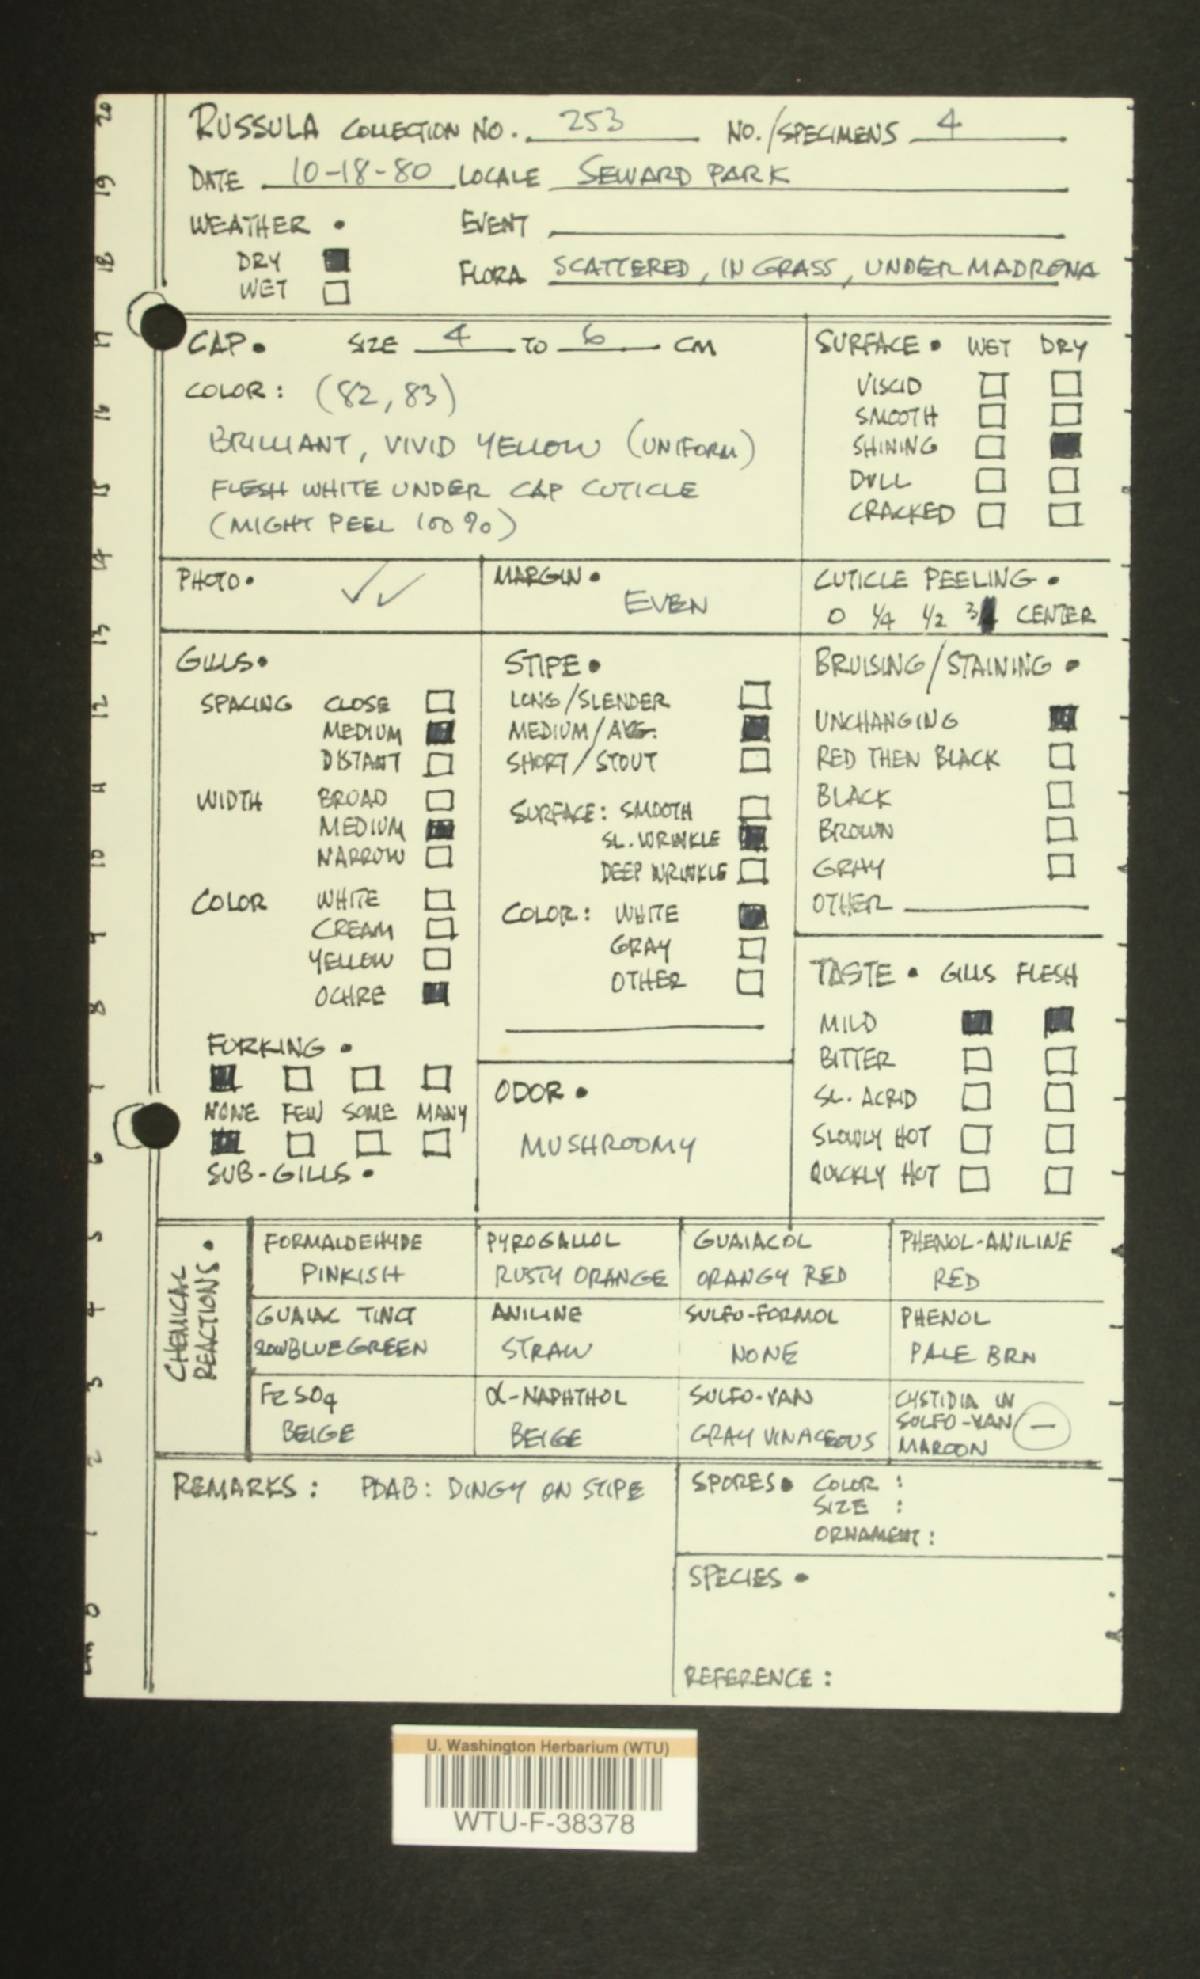 RUSSULA COLLECTION NO. 253 NO./SPECIMENS 4
DATE 10-18-80 LOCALE SEWARD PARK
WEATHER • EVENT
DRY ■
WET □
FLORA SCATTERED, IN GRASS, UNDER MADRONA
CAP • SIZE 4 TO 6 CM
COLOR: (82, 83)
BRILLIANT, VIVID YELLOW (UNIFORM)
FLESH WHITE UNDER CAP CUTICLE
(MIGHT PEEL 100%)
SURFACE • WET DRY
VISCID □ □
SMOOTH □ □
SHINING □ ■
DULL □ □
CRACKED □ □
PHOTO • ✓✓
MARGIN •
EVEN
CUTICLE PEELING •
0 1/4 1/2 3/4 CENTER
GILLS •
SPACING CLOSE □
MEDIUM ■
DISTANT □
WIDTH BROAD □
MEDIUM ■
NARROW □
COLOR WHITE □
CREAM □
YELLOW □
OCHRE ■
FORKING •
■ □ □ □
NONE FEW SOME MANY
■ □ □ □
SUB-GILLS •
STIPE •
LONG/SLENDER □
MEDIUM/AVG. ■
SHORT/STOUT □
SURFACE: SMOOTH □
SL. WRINKLE ■
DEEP WRINKLE □
COLOR: WHITE ■
GRAY □
OTHER □
ODOR •
MUSHROOMY
BRUISING/STAINING •
UNCHANGING ■
RED THEN BLACK □
BLACK □
BROWN □
GRAY □
OTHER
TASTE • GILLS FLESH
MILD ■ ■
BITTER □ □
SL. ACRID □ □
SLOWLY HOT □ □
QUICKLY HOT □ □
CHEMICAL
REACTIONS •
FORMALDEHYDE
PINKISH
PYROGALLOL
RUSTY ORANGE
GUAIACOL
ORANGY RED
PHENOL-ANILINE
RED
GUAIAC TINCT
SLOW BLUE GREEN
ANILINE
STRAW
SULFO-FORMOL
NONE
PHENOL
PALE BRN
FeSO4
BEIGE
α-NAPHTHOL
BEIGE
SULFO-VAN
GRAY VINACEOUS
CYSTIDIA IN
SULFO-VAN —
MAROON
REMARKS: PDAB: DINGY ON STIPE
SPORES • COLOR:
SIZE:
ORNAMENT:
SPECIES •
REFERENCE:
20
19
18
17
16
15
14
13
12
11
10
9
8
7
6
5
4
3
2
1
0
cm
U. Washington Herbarium (WTU)
WTU-F-38378